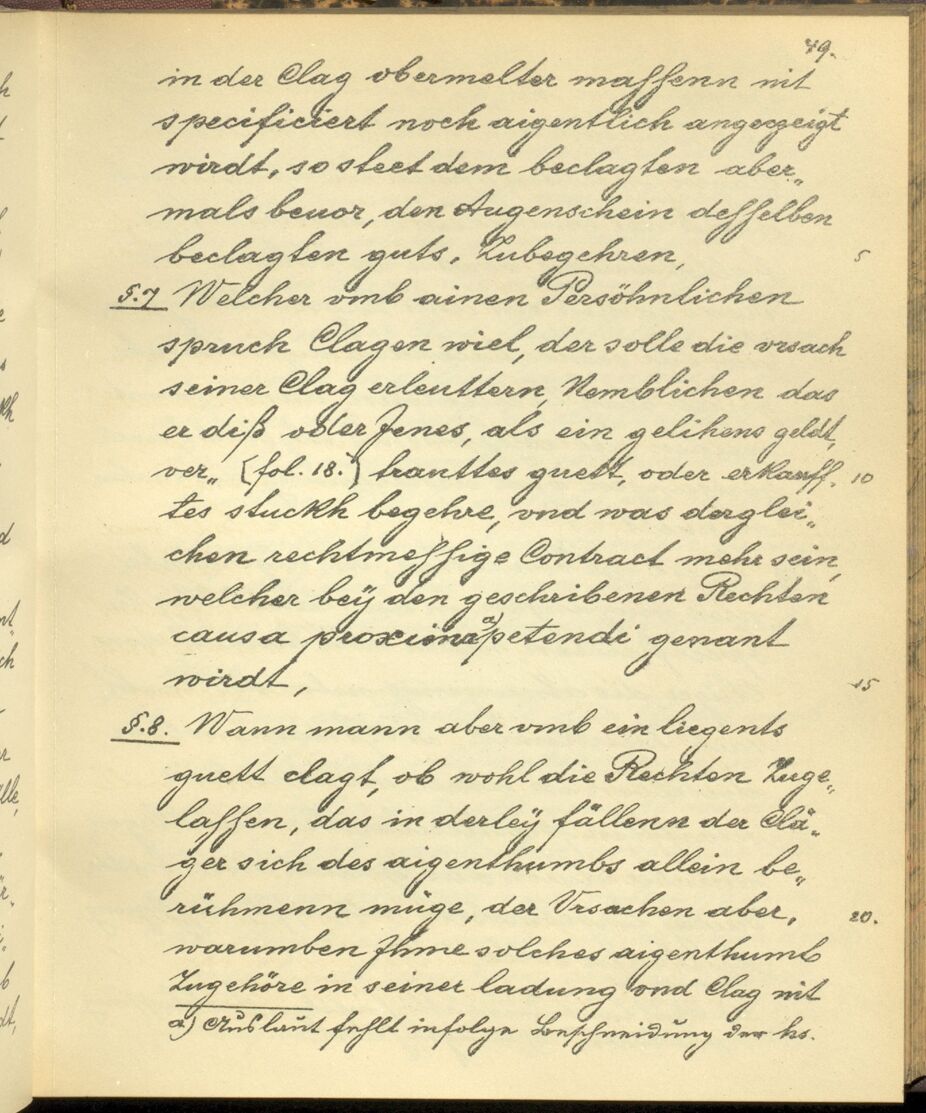 49.
in der Clag obermelter massenn nit
specificiert noch aigentlich angezeigt
wirdt, so steet dem beclagten aber„
mals beuor, den Augenschein desselben
beclagten guts, Zubegehren, 5
§.7 Welcher vmb ainen Persöhnlichen
spruch Clagen wiel, der solle die vrsach
seiner Clag erleuttern, Nemblichen das
er diß oder Jenes, als ein gelihens geldt,
ver„ (fol. 18.') trauttes guett, oder erkauff„ 10
tes stuckh begehre, vnd was derglei„
chen rechtmessige Contract mehr sein,
welcher beÿ den geschribenen Rechten
causa proxima a) petendi genant
wirdt, 15
§.8. Wann mann aber vmb ein liegents
guett clagt, ob wohl die Rechten Zuge„
lassen, das in derleÿ fällenn der Clä„
ger sich des aigenthumbs allein be„
rühmenn müge, der Vrsachen aber, 20.
warumben Jhme solches aigenthumb
Zugehöre in seiner ladung vnd Clag nit
a) Auslaut fehlt infolge Beschneidung der hs.